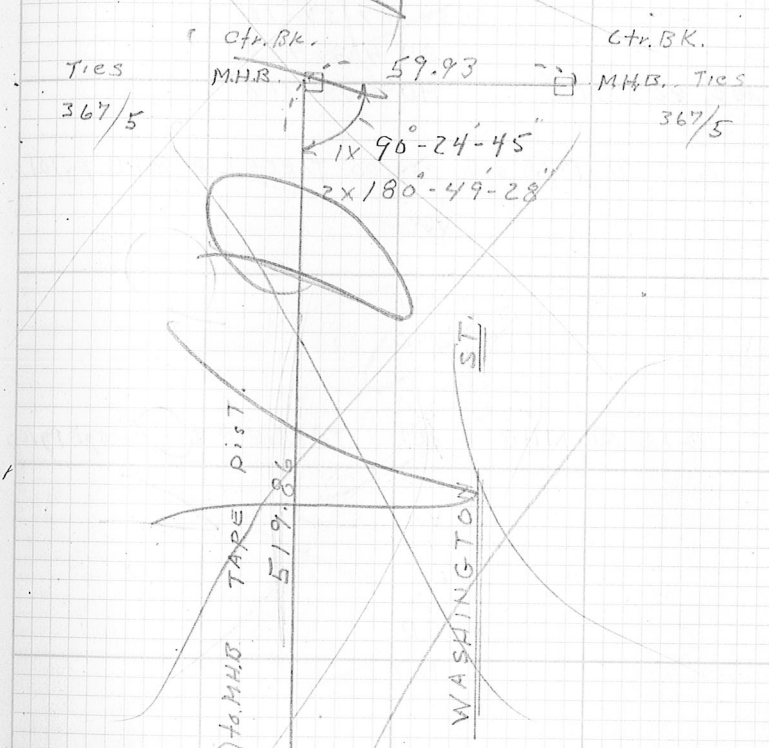 Ctr. Bk.
Ctr. BK.
Ties
M.H.B.
59.93
M.H.B. Ties
367/5
367/5
1x 90°-24'-45"
2x 180°-49'-28"
ST.
TAPE DisT.
519.86
WASHINGTON
) to. M.H.B